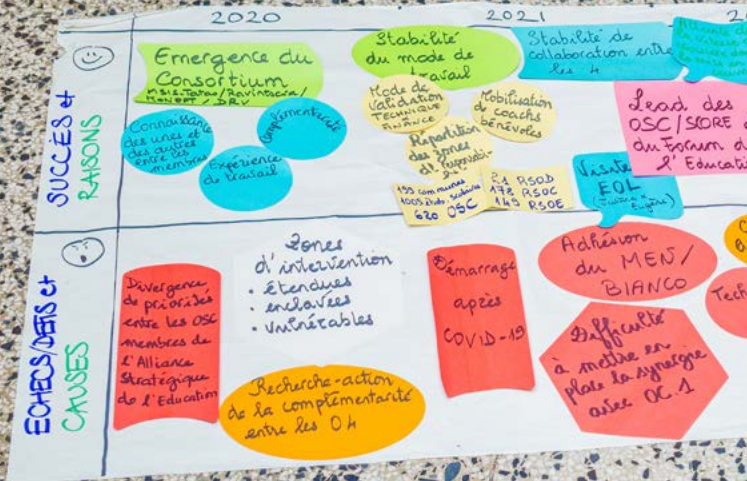 2020
2021
SUCCÈS et
RAISONS
Emergence du
Consortium
MSIS-Tatao/Ravintsara/
MONEPT / DRV
Connaissance
des unes et
des autres
entre les
membres
Complémentarité
Expérience
de travail
Stabilité
du mode de
travail
Mode de
Validation
TECHNIQUE
FINANCE
Mobilisation
de coachs
bénévoles
Répartition
des zones
199 communes
1005
620 OSC
21 RSOD
178 RSOC
149 RSOE
Stabilité de
collaboration entre
les 4
Lead des
OSC/SCORE
du Forum d
l'Educati
Visite
EOL
ECHECS/DEFIS et
CAUSES
Divergence
de priorités
entre les OSC
membres de
l'Alliance
Stratégique
de l'Education
Zones
d'intervention
• étendues
• enclavées
• vulnérables
Recherche-action
de la complémentarité
entre les 04
Démarrage
après
COVID-19
Adhésion
du MEN/
BIANCO
Difficulté
à mettre en
place la synergie
avec OC.1
Tech